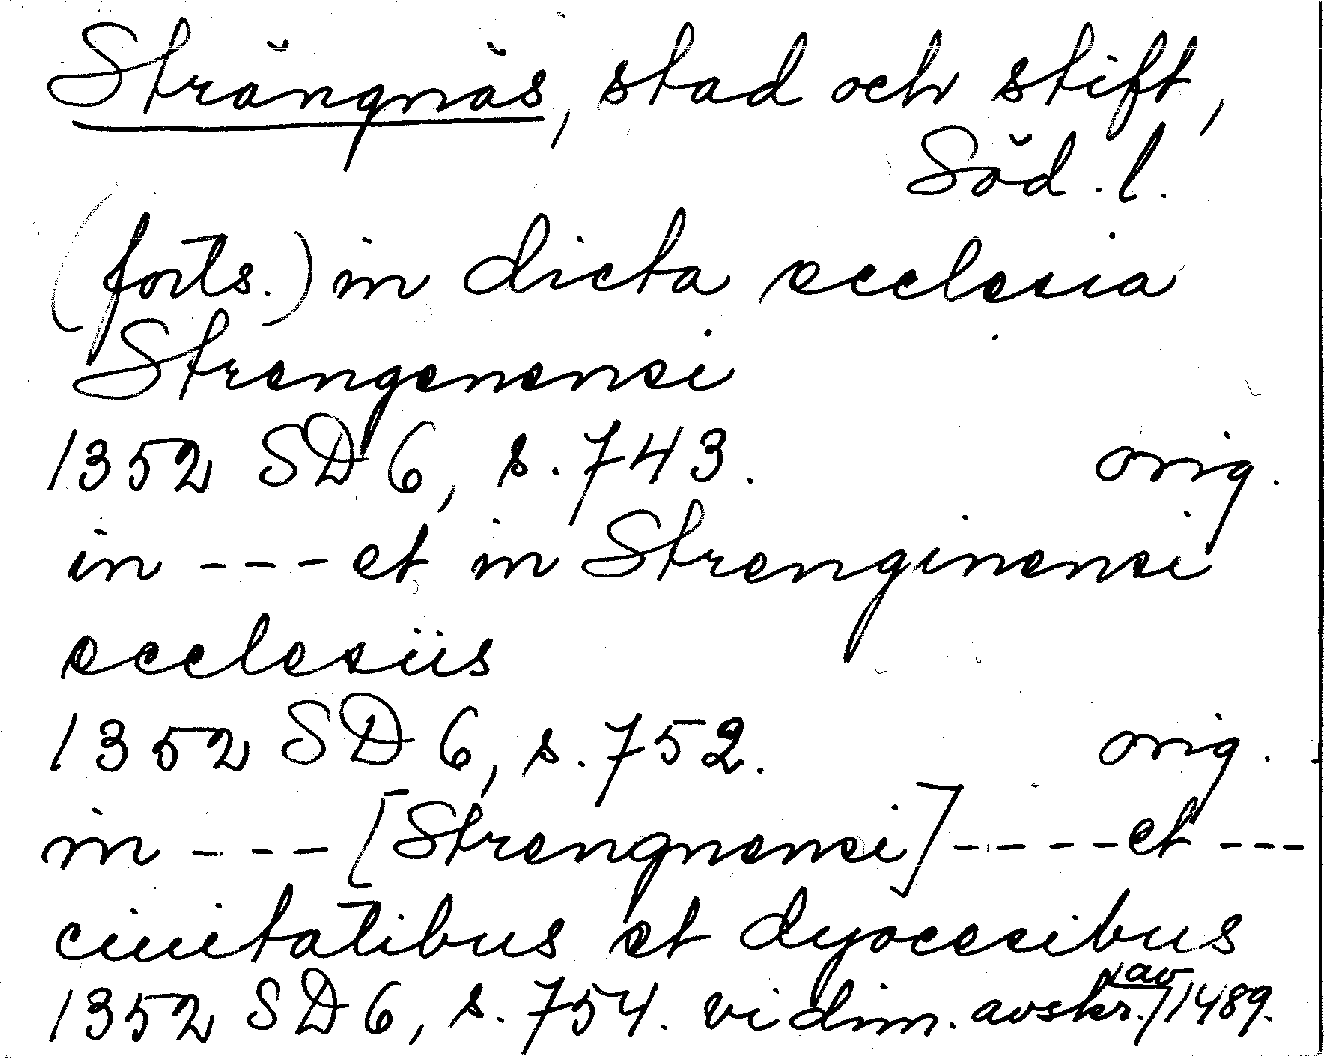 Strängnäs, stad och stift,
Söd. l.
(forts.) in dicta ecclesia
Strengenensi
1352 SD 6, s. 743. orig.
in --- et in Strenginensi
ecclesiis
1352 SD 6, s. 752. orig.
in --- [Strengnensi] ---- et ---
ciuitatibus et dyocesibus
1352 SD 6, s. 754. vidim. avskr. av 1489.